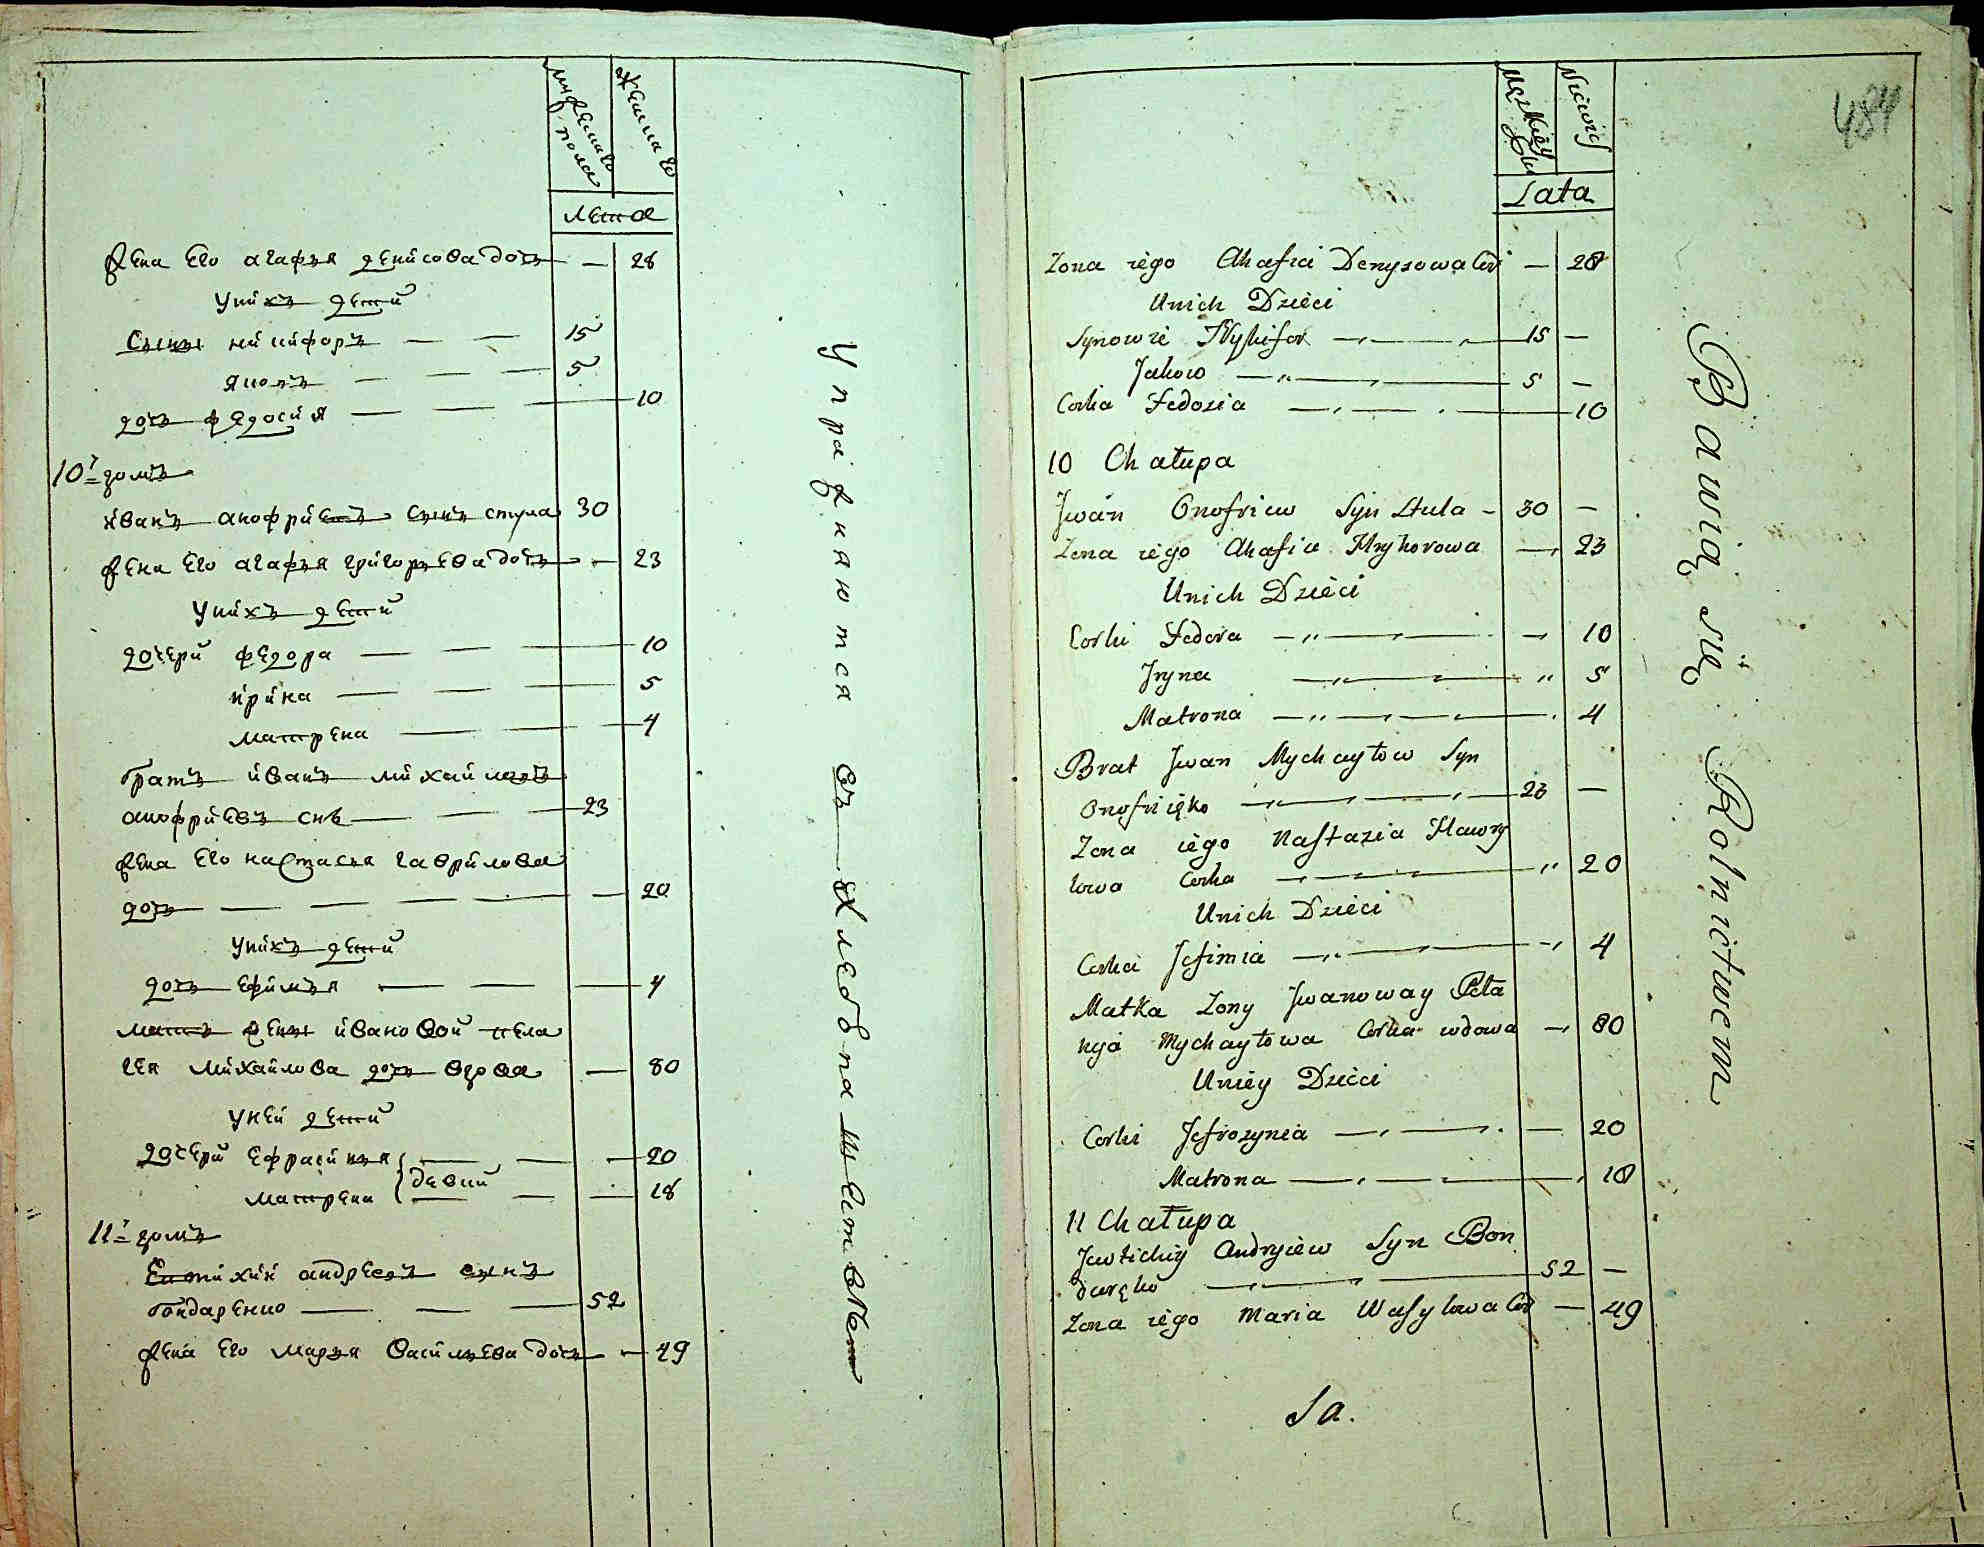 мужеска го пола
женска го
лета
жена его агафья денисова дочь — 28
у них дети
сыны никифоръ — — 15
яковъ — — — 5
дочь федосия — — — 10
10й домъ
иванъ анофриевъ сынъ стула 30
жена его агафья григорьева дочь — 23
у нихъ дети
дочери федора — — — 10
ирина — — — 5
матрена — — — 4
братъ иванъ михайловъ
анофриевъ снъ — — — 23
жена его настасья гаврилова
дочь — — — — — 20
у нихъ дети
дочь ефимья — — — 4
мать жены ивановой пела
гея михайлова дочь вдова — 80
у ней дети
дочери ефрасинья — — — 20
девки
матрена — — — 18
11й домъ
Евтихий андреевъ сынъ
бондаренко — — — 52
жена его марья васильева дочь — 49
Упражняются въ хлебопашестветъ
484
Męzkiey Płci
Niewieś
Lata
Zona iego Ahafia Denysowa Cor — 28
Unich Dzieci
Synowie Nykifor — 15 —
Jakow — 5 —
Corka Fedosia — 10
10 Chałupa
Jwan Onofriew Syn Stula – 30 —
Zona iego Ahafia Hryhorowa — 23
Unich Dzieci
Corki Fedora — 10
Jryna — 5
Matrona — 4
Brat Jwan Mychayłow Syn
Onofrięko — 23 —
Zona iego Nastazia Hawry
łowa Corka — 20
Unich Dzieci
Corka Jefimia — 4
Matka Zony Jwanoway Pela
hya Mychayłowa Corka wdowa — 80
Uniey Dzieci
Corki Jefrozynia — 20
Matrona — 18
11 Chałupa
Jewtichiy Andryiew Syn Bon
daręko — 52 —
Zona iego Maria Wasylowa Cor — 49
Sa.
Bawią się Rolnictwem